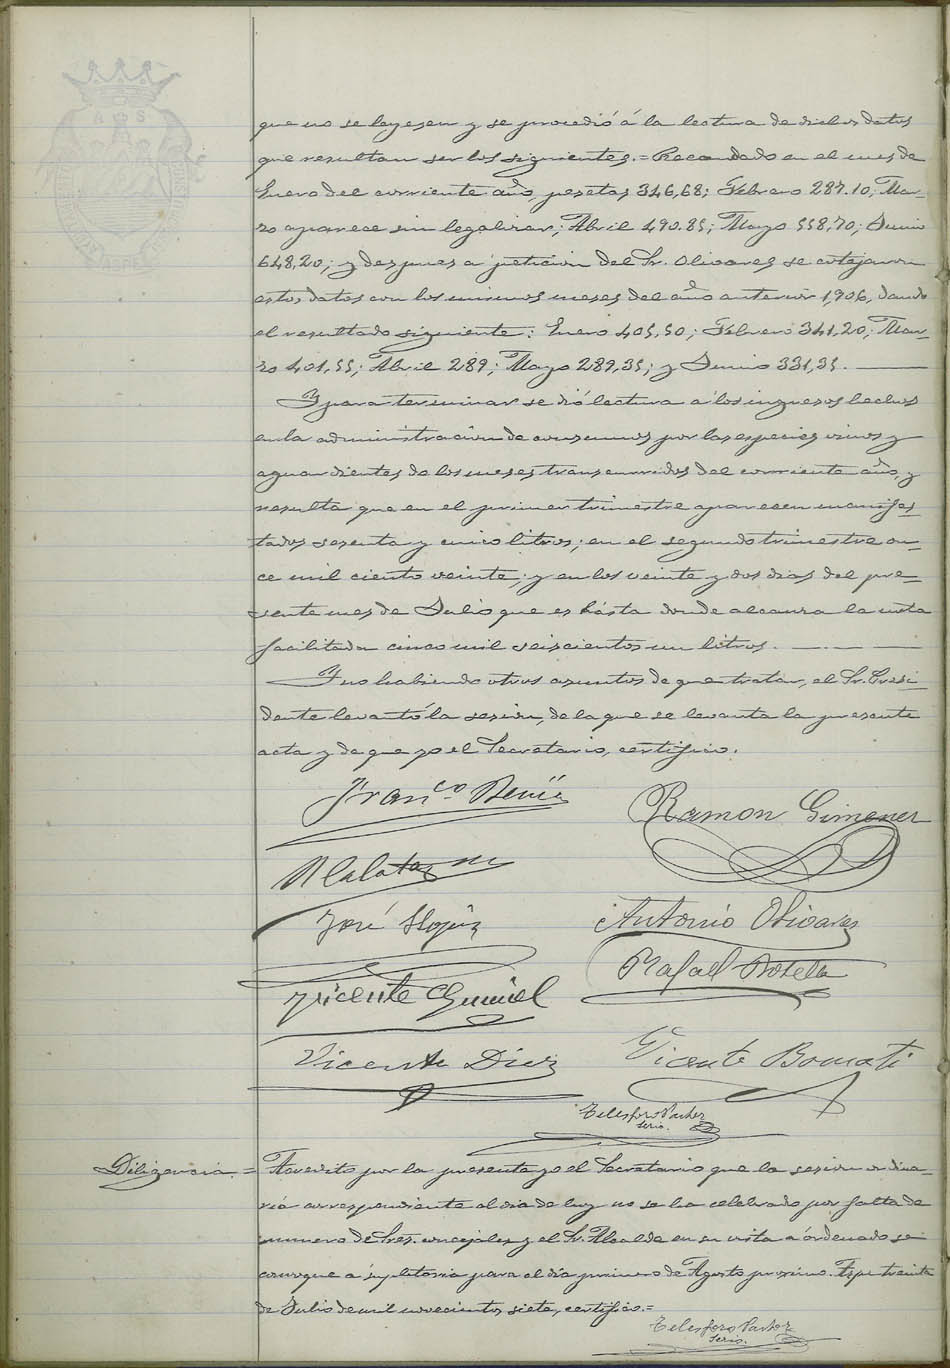 que no se leyesen y se procedió á la lectura de dichos datos
que resultan ser los siguientes.= Recaudado en el mes de
Enero del corriente año, pesetas 346,68; Febrero 287.10; Mar-
zo aparece sin legalizar; Abril 490.85; Mayo 558,70; Junio
648,20; y despues a peticion del Sr. Olivares se cotejaron
estos datos con los mismos meses del año anterior 1,906, dando
el resultado siguiente: Enero 405,50; Febrero 341,20; Mar-
zo 401,55; Abril 289; Mayo 289,35; y Junio 331,35.
Y para terminar se dió lectura a los ingresos hechos
en la administracion de consumos por las especies vinos y
aguardientes de los meses transcurridos del corriente año, y
resulta que en el primer trimestre aparecen manifes-
tados sesenta y cinco litros; en el segundo trimestre on-
ce mil ciento veinte; y en los veinte y dos dias del pre-
sente mes de Julio que es hásta donde alcanza la nota
facilitada cinco mil seiscientos un litros.
Y no habiendo otros asuntos de que tratar, el Sr. Presi-
dente levantó la sesion, de la que se levanta la presente
acta y de que yo el Secretario, certifico.
Franco.
Ramon Gimenez
José
Antonio Olivares
Vicente
Rafael Botella
Vicente Diez
Vicente Bomati
Telesforo Pastor
Serio.
Diligencia = Acredito por la presente yo el Secretario que la sesion ordina-
ria correspondiente al dia de hoy no se ha celebrado por falta de
numero de Sres. concejales y el Sr. Alcalde en su vista a órdenado se
convoque a supletoria para el dia primero de Agosto proximo. Aspe treinta
de Julio de mil novecientos siete, certifico.=
Telesforo Pastor
Serio.